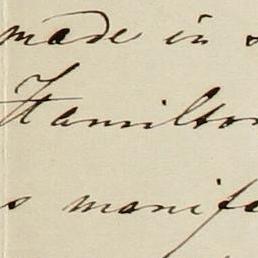 made in s
Hamilton
s manife